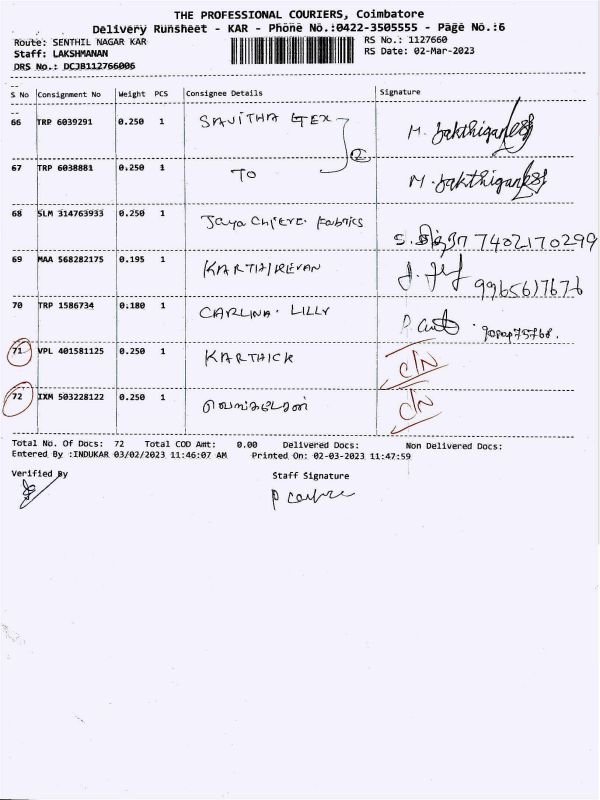 THE PROFESSIONAL COURIERS, Coimbatore
Delivery Runsheet - KAR - Phone No.:0422-3505555 - Page No.:6
Route: SENTHIL NAGAR KAR RS No.: 1127660
Staff: LAKSHMANAN RS Date: 02-Mar-2023
DRS No.: DCJB112766006
S No Consignment No Weight PCS Consignee Details Signature
66 TRP 6039291 0.250 1 SAVITHA TEX M. Sakthiganesh
2
67 TRP 6038881 0.250 1 TO M. Sakthiganesh
68 SLM 314763933 0.250 1 Jaya Fabrics 7402170299
69 MAA 568282175 0.195 1 KARTHIKEVAN 9965617676
70 TRP 1586734 0.180 1 CARLINA. LILLY
71 VPL 401581125 0.250 1 KARTHICK C/N
72 IXM 503228122 0.250 1 C/N
Total No. Of Docs: 72 Total COD Amt: 0.00 Delivered Docs: Non Delivered Docs:
Entered By :INDUKAR 03/02/2023 11:46:07 AM Printed On: 02-03-2023 11:47:59
Verified By Staff Signature